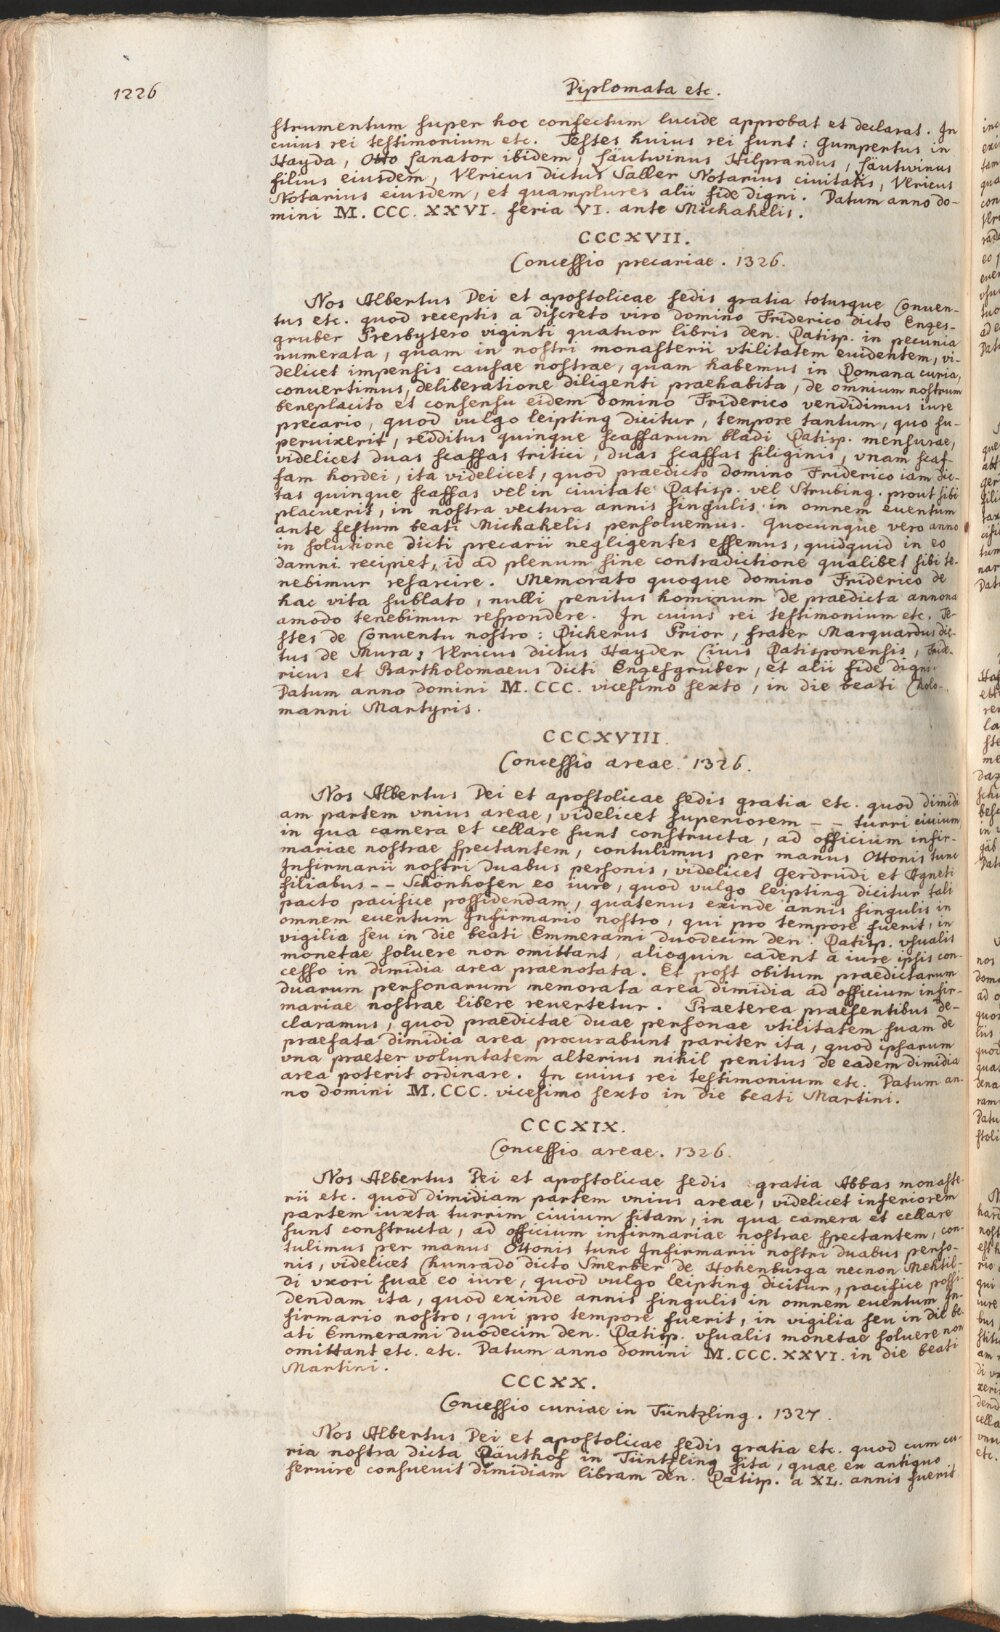 1226
Diplomata etc.
strumentum super hoc confectum lucide approbat et declarat. In
cuius rei testimonium etc. Testes huius rei sunt: Gumpertus in
Hayda, Otto sanator ibidem, Häutwinus Hilprandus, Häutwinus
filius eiusdem, Vlricus dictus Saller Notarius civitatis, Vlricus
Notarius eiusdem, et quamplures alii fide digni. Datum anno do-
mini M. CCC. XXVI. feria VI. ante Michahelis.
CCCXVII.
Concessio precariae. 1326.
Nos Albertus Dei et apostolicae sedis gratia totusque Conuen-
tus etc. quod receptis a discreto viro domino Friderico dicto Enges-
gruber Presbytero viginti quatuor libris den. Ratisp. in pecunia
numerata, quam in nostri monasterii vtilitatem euidentem, vi-
delicet impensis causae nostrae, quam habemus in Romana curia,
conuertimus, deliberatione diligenti praehabita, de omnium nostrum
beneplacito et consensu eidem domino Friderico vendidimus iure
precario, quod vulgo leipting dicitur, tempore tantum, quo su-
peruixerit, redditus quinque scaffarum bladi Ratisp. mensurae,
videlicet duas scaffas tritici, duas scaffas siliginis, vnam scaf-
fam hordei, ita videlicet, quod praedicto domino Friderico iam dic-
tas quinque scaffas vel in ciuitate Ratisp. vel Strubing. prout sibi
placuerit, in nostra vectura annis singulis in omnem euentum
ante festum beati Michahelis persoluemus. Quocunque vero anno
in solutione dicti precarii negligentes essemus, quidquid in eo
damni recipiet, id ad plenum sine contradictione qualibet sibi te-
nebimur resarcire. Memorato quoque domino Friderico de
hac vita sublato, nulli penitus hominum de praedicta annona
amodo tenebimur respondere. In cuius rei testimonium etc. Te-
stes de Conuentu nostro: Richerus Prior, frater Marquardus dic-
tus de Mura; Vlricus dictus Hayder Ciuis Ratisponensis, Fride-
ricus et Bartholomaeus dicti Engesgruber, et alii fide digni.
Datum anno domini M. CCC. vicesimo sexto, in die beati Cholo-
manni Martyris.
CCCXVIII.
Concessio areae. 1326.
Nos Albertus Dei et apostolicae sedis gratia etc. quod dimidi
am partem vnius areae, videlicet superiorem -- turri ciuium
in qua camera et cellare sunt constructa, ad officium infir-
mariae nostrae spectantem, contulimus per manus Ottonis tunc
Infirmarii nostri duabus personis, videlicet Gerdrudi et Agneti
filiabus -- Schönhofen eo iure, quod vulgo leipting dicitur tali
pacto pacifice possidendam, quatenus exinde annis singulis in
omnem euentum Infirmario nostro, qui pro tempore fuerit, in
vigilia seu in die beati Emmerami duodecim den. Ratisp. vsualis
monetae soluere non omittant, alioquin cadent a iure ipsis con-
cesso in dimidia area praenotata. Et post obitum praedictarum
duarum personarum memorata area dimidia ad officium infir-
mariae nostrae libere reuertetur. Praeterea praesentibus de-
claramus, quod praedictae duae personae vtilitatem suam de
praefata dimidia area procurabunt pariter ita, quod ipsarum
vna praeter voluntatem alterius nihil penitus de eadem dimidia
area poterit ordinare. In cuius rei testimonium etc. Datum an-
no domini M. CCC. vicesimo sexto in die beati Martini.
CCCXIX.
Concessio areae. 1326.
Nos Albertus Dei et apostolicae sedis gratia Abbas monaste-
rii etc. quod dimidiam partem vnius areae, videlicet inferiorem
partem iuxta turrim ciuium sitam, in qua camera et cellare
sunt constructa, ad officium infirmariae nostrae spectantem, con-
tulimus per manus Ottonis tunc Infirmarii nostri duabus perso-
nis, videlicet Chunrado dicto Smerber de Hohenburga necnon Mehtil-
di vxori suae eo iure, quod vulgo leipting dicitur, pacifice possi-
dendam ita, quod exinde annis singulis in omnem euentum In-
firmario nostro, qui pro tempore fuerit, in vigilia seu in die be-
ati Emmerami duodecim den. Ratisp. vsualis monetae soluere non
omittant etc. etc. Datum anno domini M. CCC. XXVI. in die beati
Martini.
CCCXX.
Concessio curiae in Tüntzling. 1327.
Nos Albertus Dei et apostolicae sedis gratia etc. quod cum cu-
ria nostra dicta Räuthof in Tüntzling sita, quae ex antiquo
seruire consueuit dimidiam libram den. Ratisp. a XL. annis fuerit